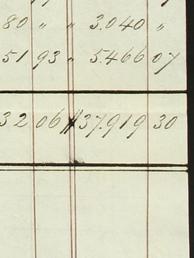 80 " " 3.040 "
51 93 " 5.466 07
32 06 37.919 30